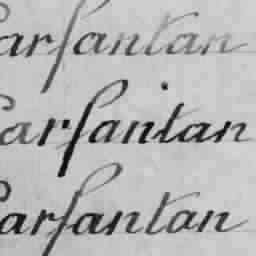 Carfantan
Carfantan
Carfantan